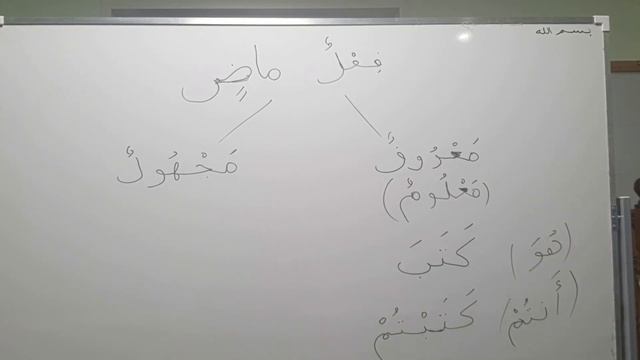 بسم الله
فِعْلٌ مَاضٍ
مَعْرُوفٌ مَجْهُولٌ
(مَعْلُومٌ)
(هُوَ) كَتَبَ
(أَنتُمْ) كَتَبْتُمْ